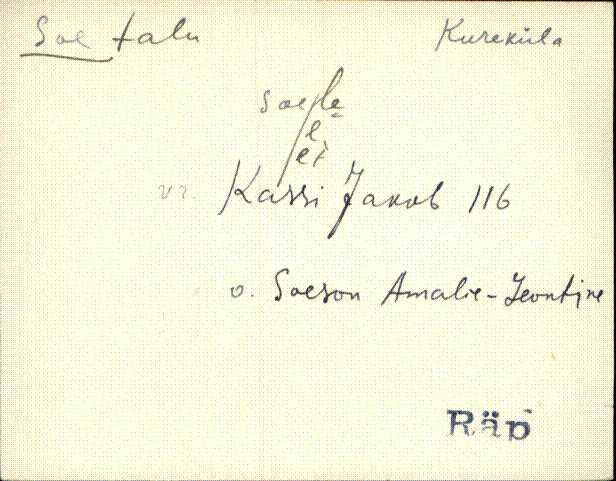 Soe talu Kureküla
soe/le
e
et
vr. Kassi Jakob 116
o. Soeson Amalie-Leontine
Räp